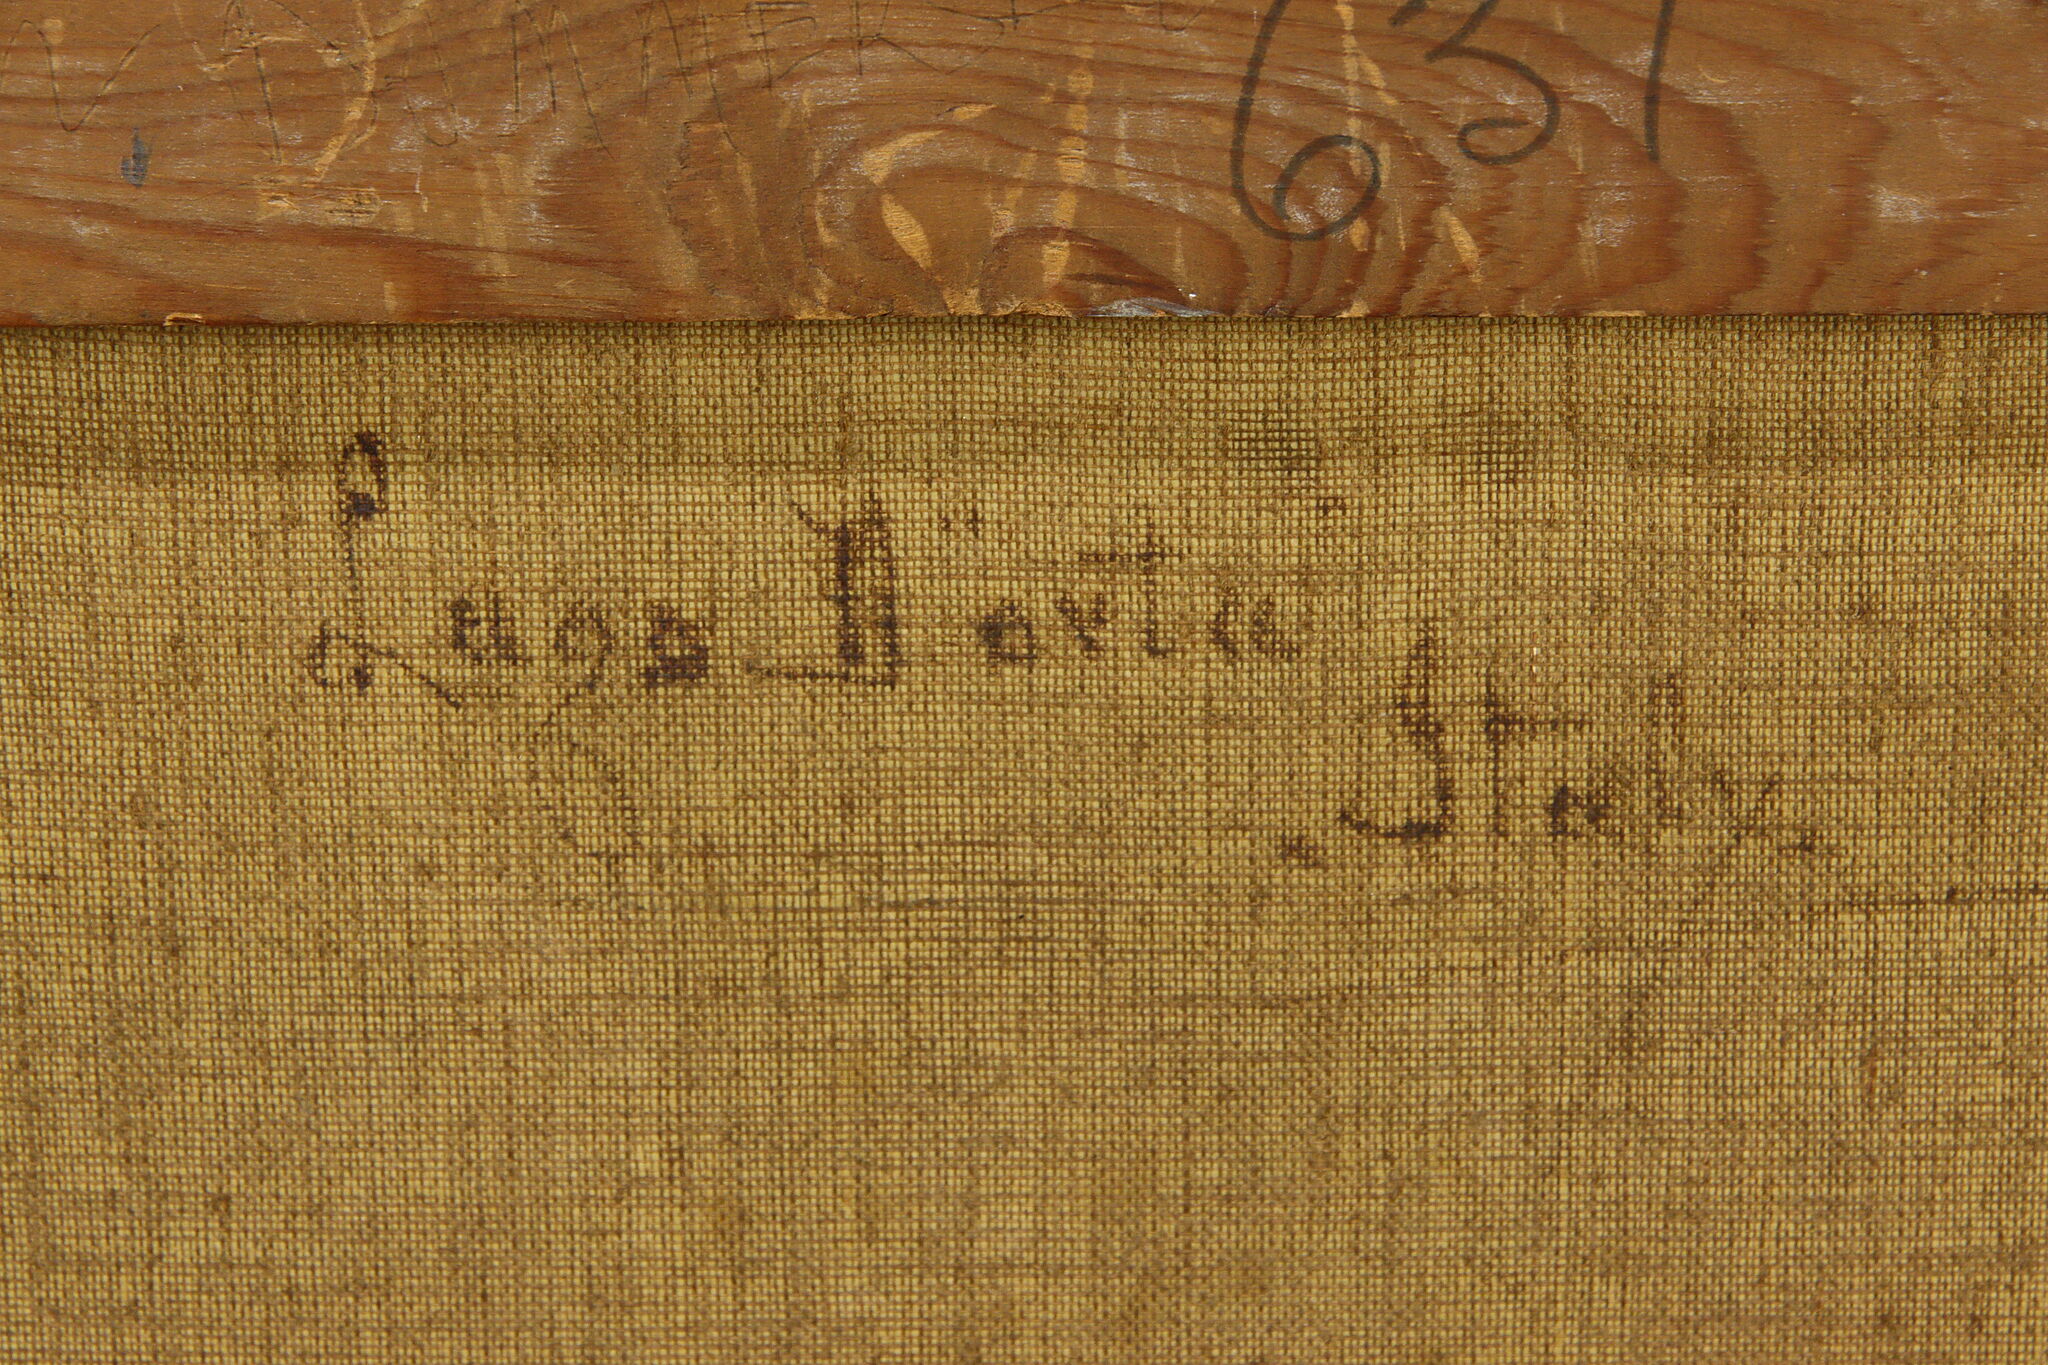 631
Lago D"orta
Italy